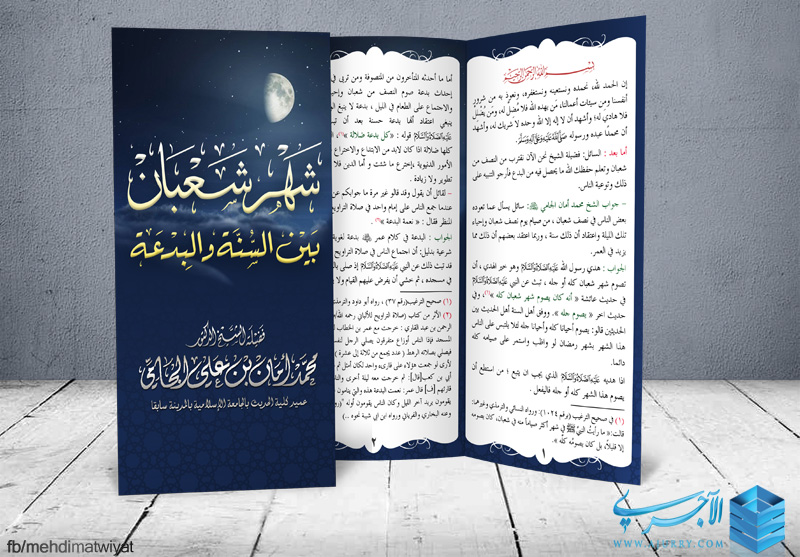 شهر شعبان
بين السنة والبدعة
فضيلة الشيخ الدكتور
محمد أمان بن علي الجامي
عميد كلية الحديث بالجامعة الإسلامية بالمدينة سابقا
بسم الله الرحمن الرحيم
إن الحمد لله، نحمده ونستعينه ونستغفره، ونعوذ به من شرور
أنفسنا ومن سيئات أعمالنا، من يهده الله فلا مضل له، ومن يضلل
فلا هادي له؛ وأشهد أن لا إله إلا الله وحده لا شريك له، وأشهد
أن محمدا عبده ورسوله ﷺ.
أما بعد : السائل: فضيلة الشيخ نحن الآن نقترب من النصف من
شعبان وتعلم حفظك الله ما يحصل فيه من البدع فأرجو التنبيه على
ذلك وتوعية الناس.
- جواب الشيخ محمد أمان الجامي : سائل يسأل عما تعوده
بعض الناس في نصف شعبان ، من صيام يوم نصف شعبان وإحياء
تلك الليلة واعتقاد أن ذلك سنة ، وربما اعتقد بعضهم أن ذلك مما
يزيد في العمر.
الجواب : هدي رسول الله عليه الصلاة والسلام وهو خير الهدي ، أن
تصوم شهر شعبان كله أو جله ، ثبت عن النبي عليه الصلاة والسلام
في حديث عائشة « أنه كان يصوم شهر شعبان كله »(١)، وفي
حديث آخر « يصوم جله ». ووفق أهل السنة أهل الحديث بين
الحديثين قالوا: يصوم أحيانا كله وأحيانا جله لئلا يلتبس على الناس
هذا الشهر بشهر رمضان لو واظب واستمر على صيامه كله
دائما.
إذا هديه عليه الصلاة والسلام الذي يجب أن يتبع : من استطع أن
يصوم هذا الشهر كله أو جله فاليفعل .
(١) في صحيح الترغيب (برقم ١٠٢٤) ، ورواه النسائي والترمذي وغيرهما:
قالت: «ما رأيت النبي ﷺ في شهر أكثر صياماً منه في شعبان، كان يصومه
إلا قليلاً، بل كان يصومه كله ».
١
أما ما أحدثه المتأخرون من المتصوفة ومن تربى في
إحداث بدعة صوم النصف من شعبان وإحيا
والاجتماع على الطعام في الليل ، بدعة لا ينبغ
ينبغي اعتقاد أنها بدعة حسنة بعد أن ثب
عليه الصلاة والسلام قوله : «كل بدعة ضلالة »
كلها ضلالة اذا كان لابد من الابتداع والاختراع
الأمور الدنيوية ،اخترع ما شئت و أما الدين فلا
تطوير ولا زيادة .
- لقائل أن يقول وقد قالو غير مرة ما جوابكم عن
عندما جمع الناس على إمام واحد في صلاة التراويح
المنظر فقال : « نعمة البدعة »
الجواب : البدعة في كلام عمر بدعة لغوية
شرعية بدليل: أن اجتماع الناس في صلاة التراويح
قد ثبت ذلك عن النبي عليه الصلاة والسلام إذ صلى بال
في مسجده ، ثم خشي أن يفرض عليهم القيام ولا
(١) صحيح الترغيب(رقم ٣٧) ، رواه أبو داود والترمذي
(٢) الأثر من كتاب (صلاة التراويح للألباني رحمه الله
الرحمن بن عبد القاري : خرجت مع عمر بن الخطاب
المسجد فإذا الناس أوزاع متفرقون يصلي الرجل لنفس
فيصلي بصلاته الرهط ( عدد يجمع من ثلاثة إلى عشرة )
لأرى لو جمعت هؤلاء على قارئ واحد لكان أمثل ثم
أبي بن كعب]قال[: ثم خرجت معه ليلة أخرى والناس
قارئهم [ف] قال عمر: نعمت البدعة هذه والتي ينامون
يقومون يريد آخر الليل وكان الناس يقومون أوله "
وعنه البخاري والفريابي ورواه ابن أبي شيبة نحوه ..)
٢
الآجري
WWW.AJURRY.COM
fb/mehdimatwiyat